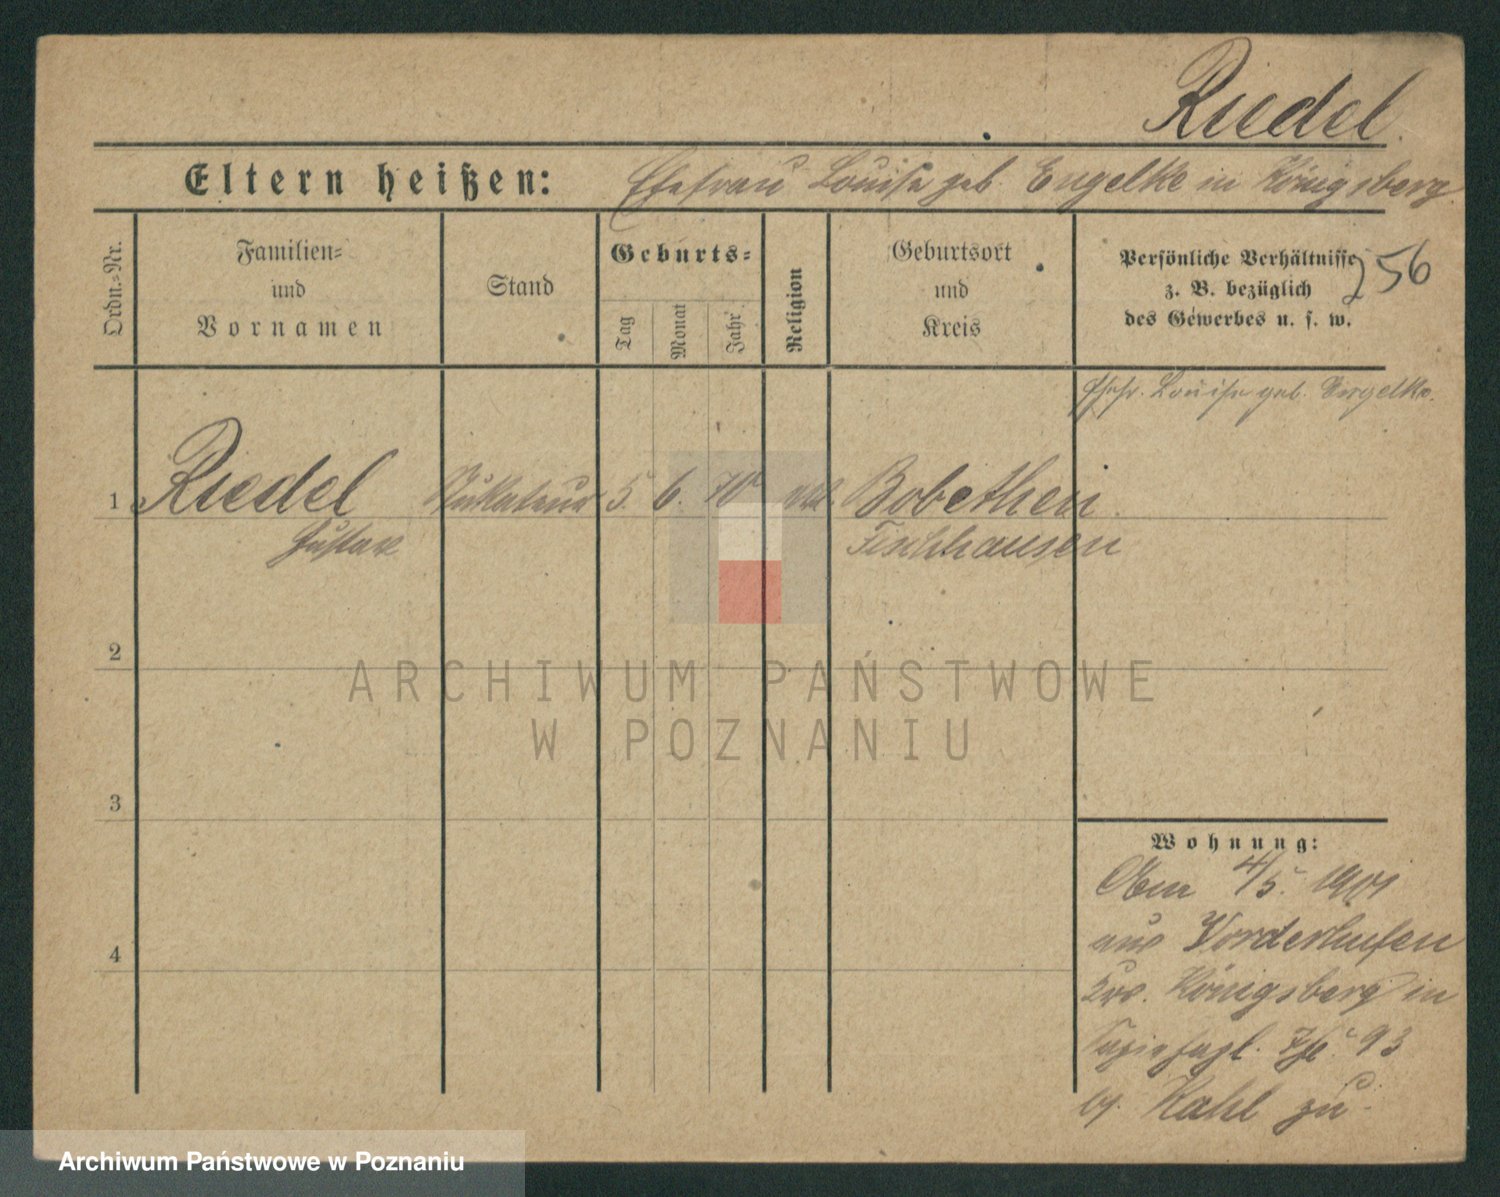 Riedel.
Eltern heißen: Ehefrau Louise geb. Engelke in Königsberg
Ordn.-Nr.
Familien-
und
Vornamen
Stand
Geburts-
Tag
Monat
Jahr
Religion
Geburtsort
und
Kreis
Persönliche Verhältnisse
z. B. bezüglich
des Gewerbes u. s. w.
256
Ehefr. Louise geb. Engelke.
1 Riedel Stukateur 5. 6. 70 Bobethen
Gustav Fischhausen
2
ARCHIWUM PAŃSTWOWE
W POZNANIU
3
4
Wohnung:
4/5. 1901
aus Vorderhufen
Krs. Königsberg in
93
by. Kahl zu
Archiwum Państwowe w Poznaniu